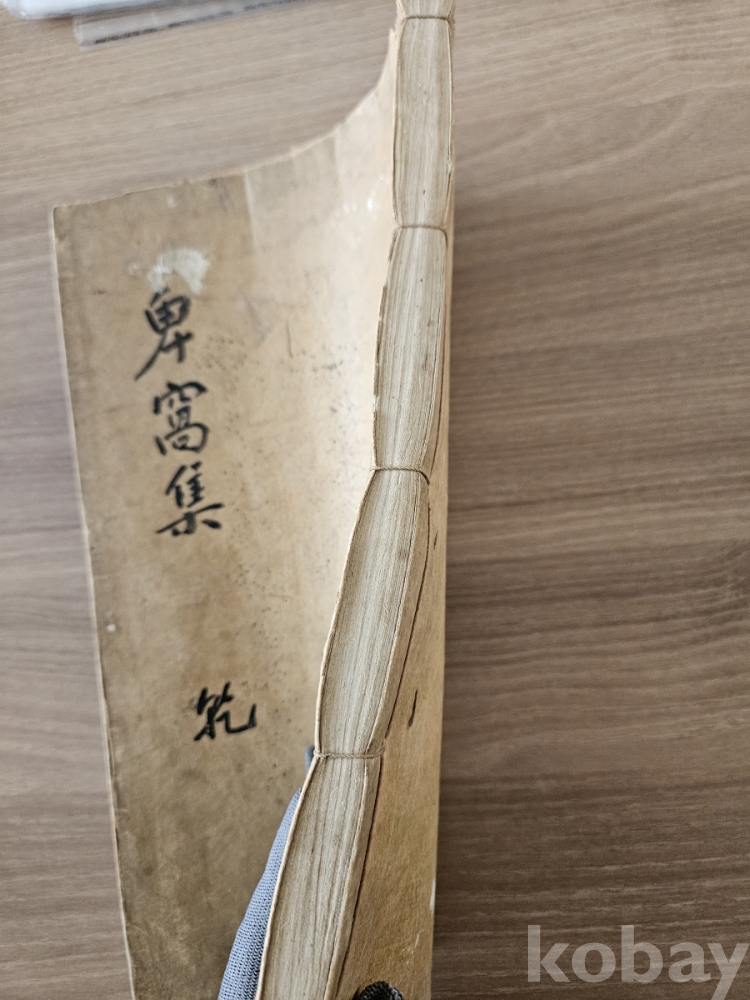 卑窩集
乾
kobay